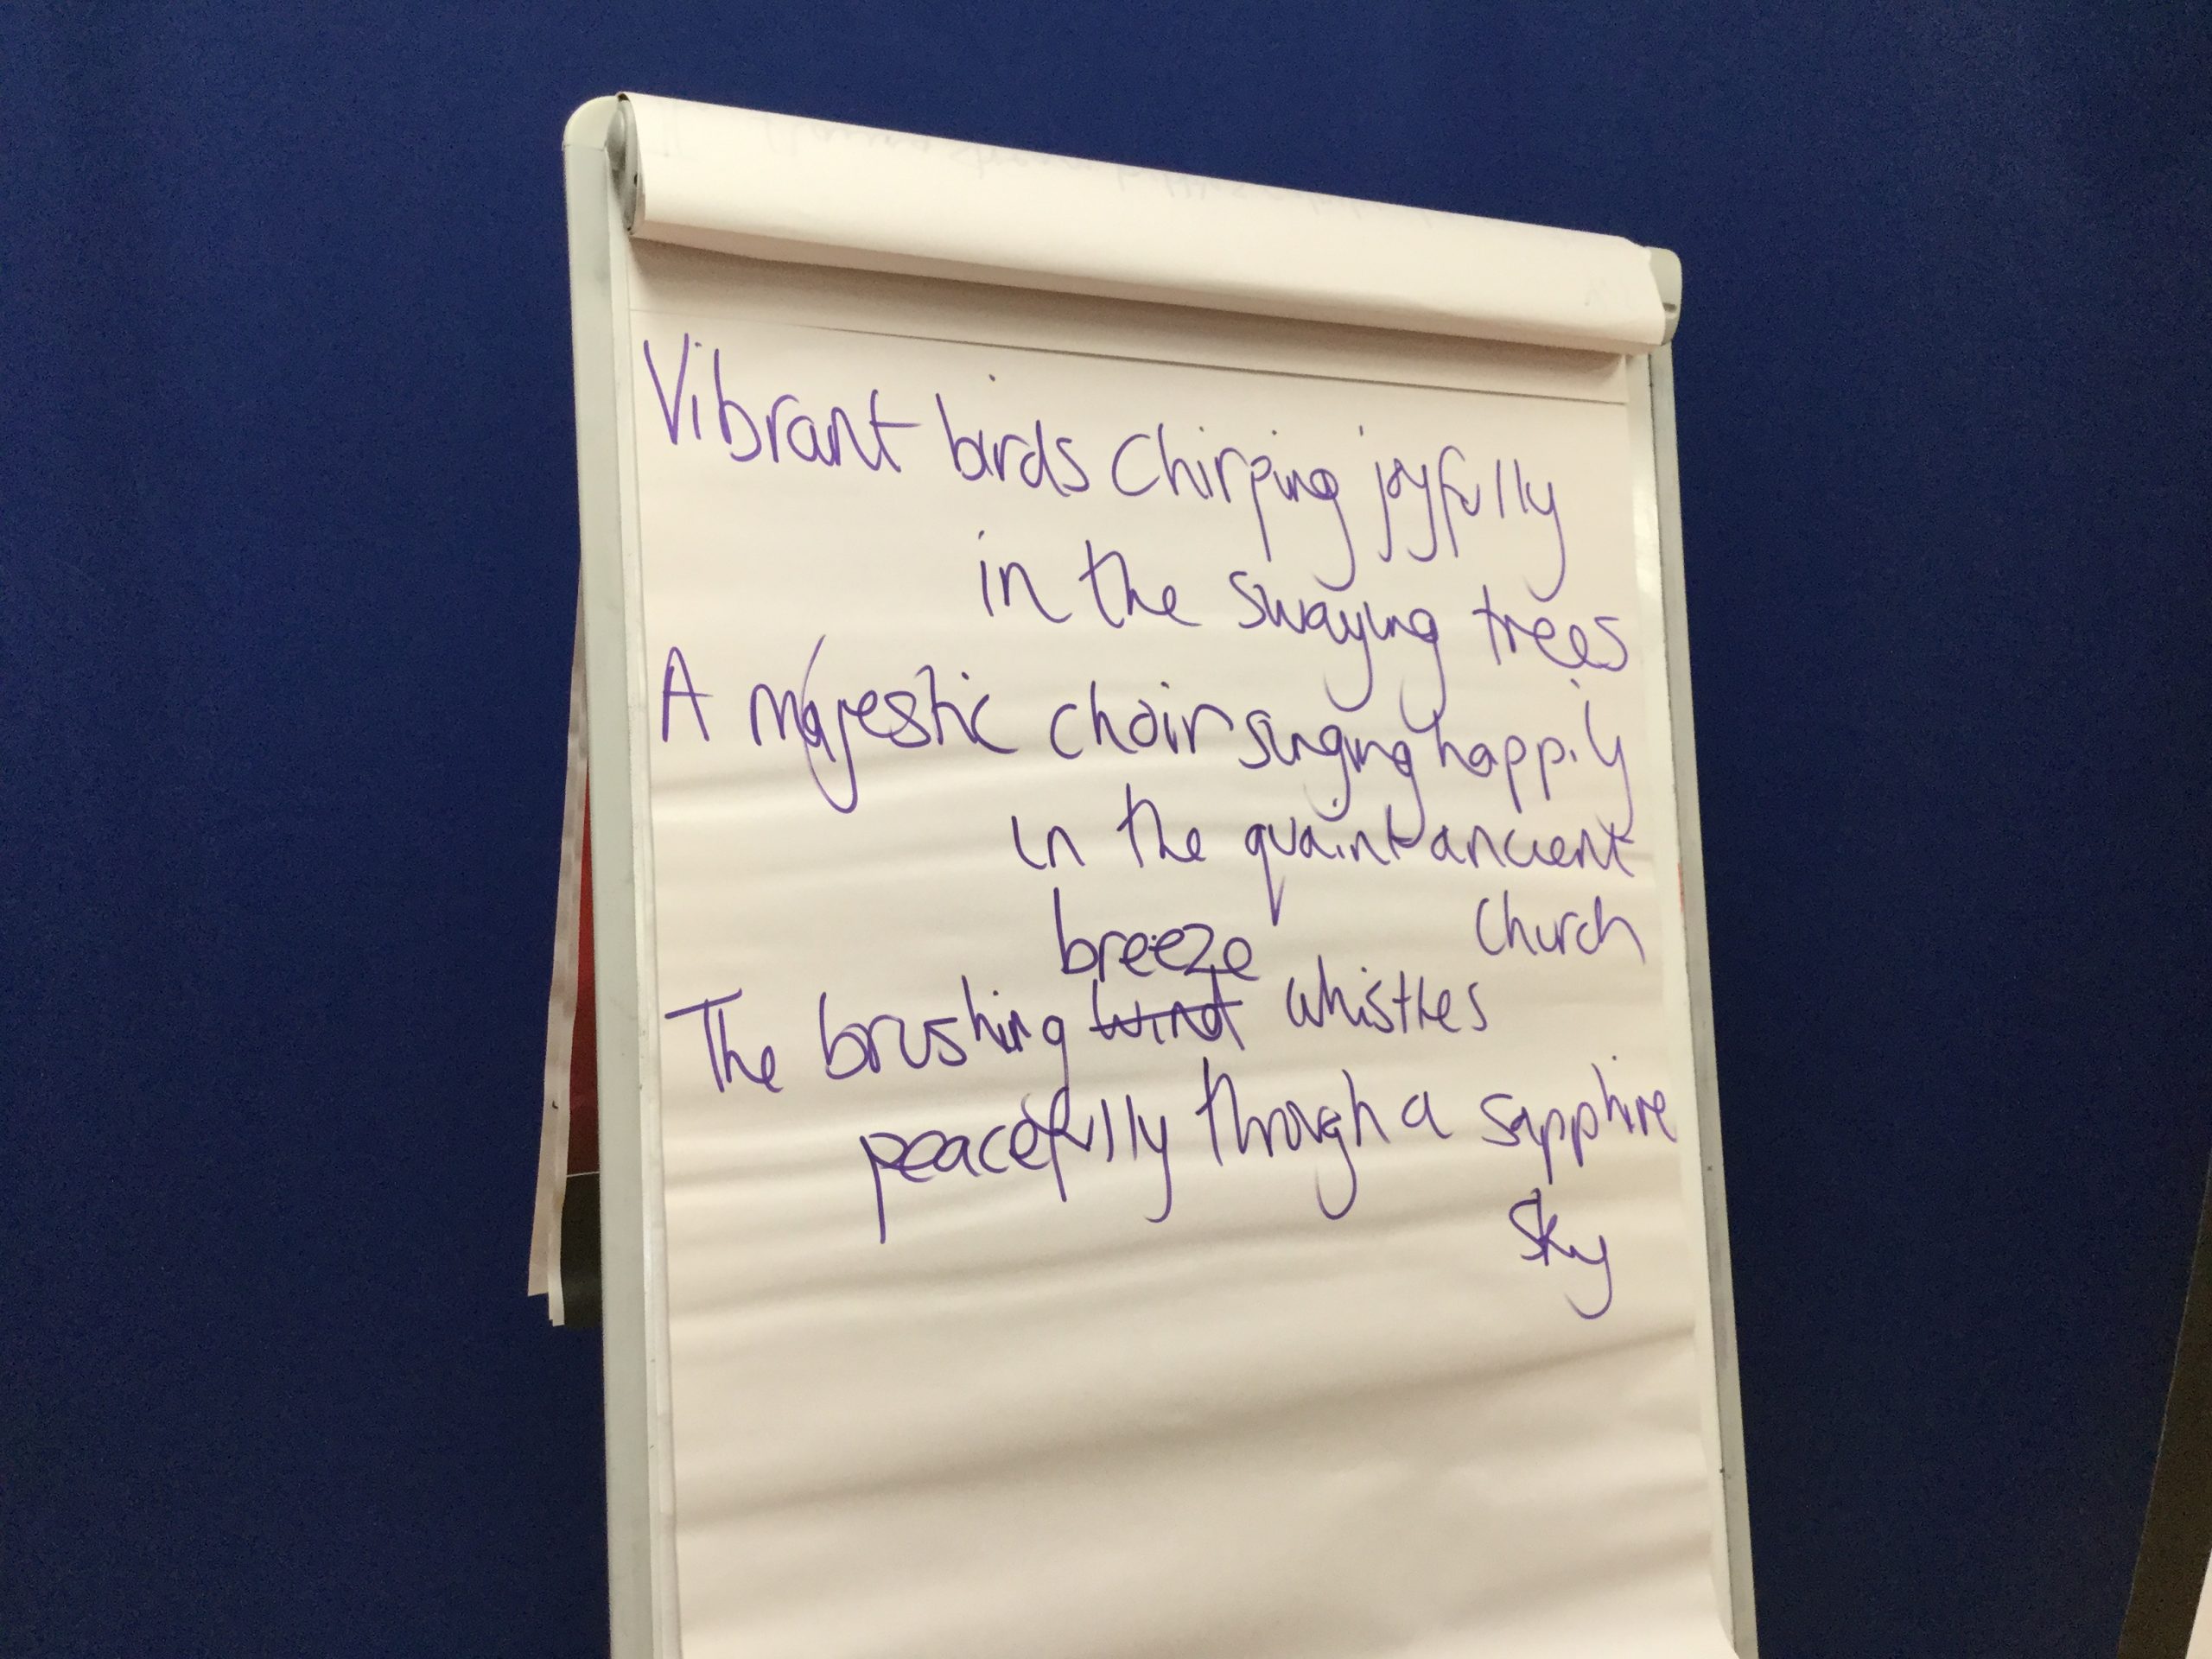 Vibrant birds chirping joyfully
in the swaying trees
A majestic choir singing happily
in the quaint ancient
church
breeze
The brushing wind whistles
peacefully through a sapphire
sky